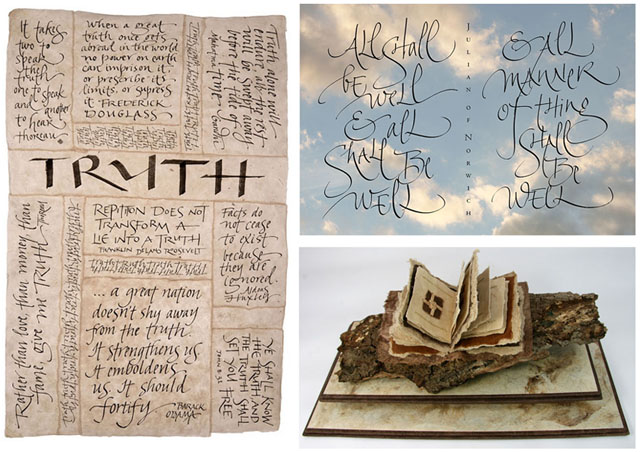 It takes
two to
speak
the
truth
one to speak
and another
to hear
thoreau
When a great
truth once gets
abroad in the world
no power on earth
can imprison it
or prescribe its
limits, or suppress
it FREDERICK
DOUGLASS
Truth alone will
endure all the rest
will be swept away
before the tide of
time Gandhi
TRUTH
Rather than love, than money, than
fame, give me TRUTH Thoreau
REPITION DOES NOT
TRANSFORM A
LIE INTO A TRUTH
FRANKLIN DELANO ROOSEVELT
Facts do
not cease
to exist
because
they are
ignored.
Aldous
Huxley
... a great nation
doesn't shy away
from the truth.
It strengthens us
It emboldens
us. It should
fortify
BARACK
OBAMA
YE SHALL KNOW
THE TRUTH AND
THE TRUTH SHALL
SET YOU FREE
JOHN 8:32
All Shall
be well
& all
Shall Be
Well
JULIAN OF NORWICH
& all
manner
of thing
Shall
be
Well